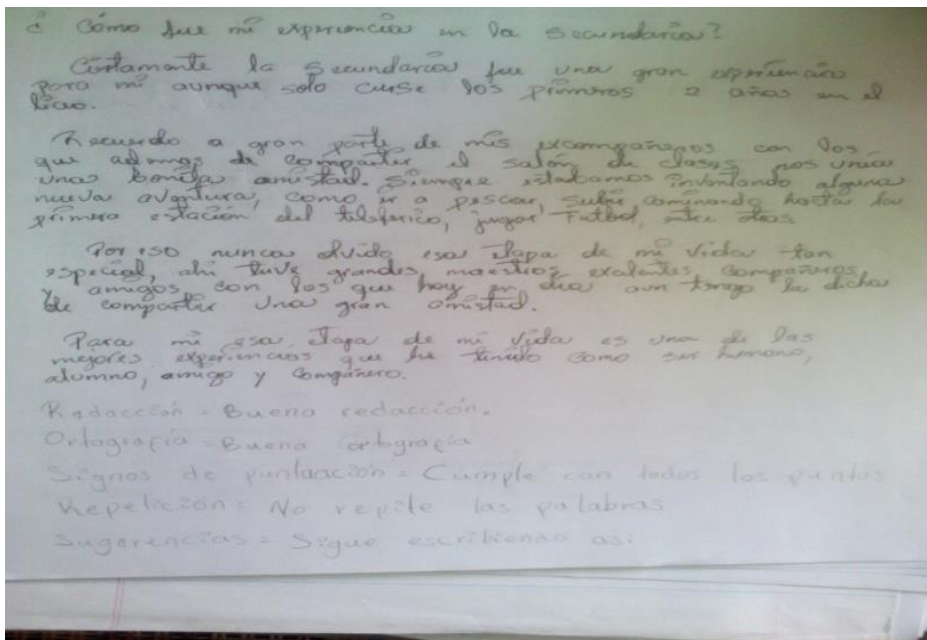 ¿ Cómo fue mi experiencia en la secundaria?
Ciertamente la secundaria fue una gran experiencia
para mi aunque solo curse los primeros 2 años en el
liceo.
Recuerdo a gran parte de mis excompañeros con los
que ademas de compartir el salón de clases, nos unia
una bonita amistad. Siempre estabamos inventando alguna
nueva aventura, como ir a pescar, subir caminando hasta la
primera estación del teleferico, jugar Futbol, entre otras.
Por eso nunca olvido esa etapa de mi vida tan
especial, ahi tuve grandes maestros, exelentes compañeros
y amigos con los que hoy en dia aun tengo la dicha
de compartir una gran amistad.
Para mi esa etapa de mi vida es una de las
mejores experiencias que he tenido como ser humano,
alumno, amigo y compañero.
Redacción = Buena redacción.
Ortografía = Buena ortografía
Signos de puntuación = Cumple con todos los puntos
Repetición = No repite las palabras
Sugerencias = Sigue escribiendo asi